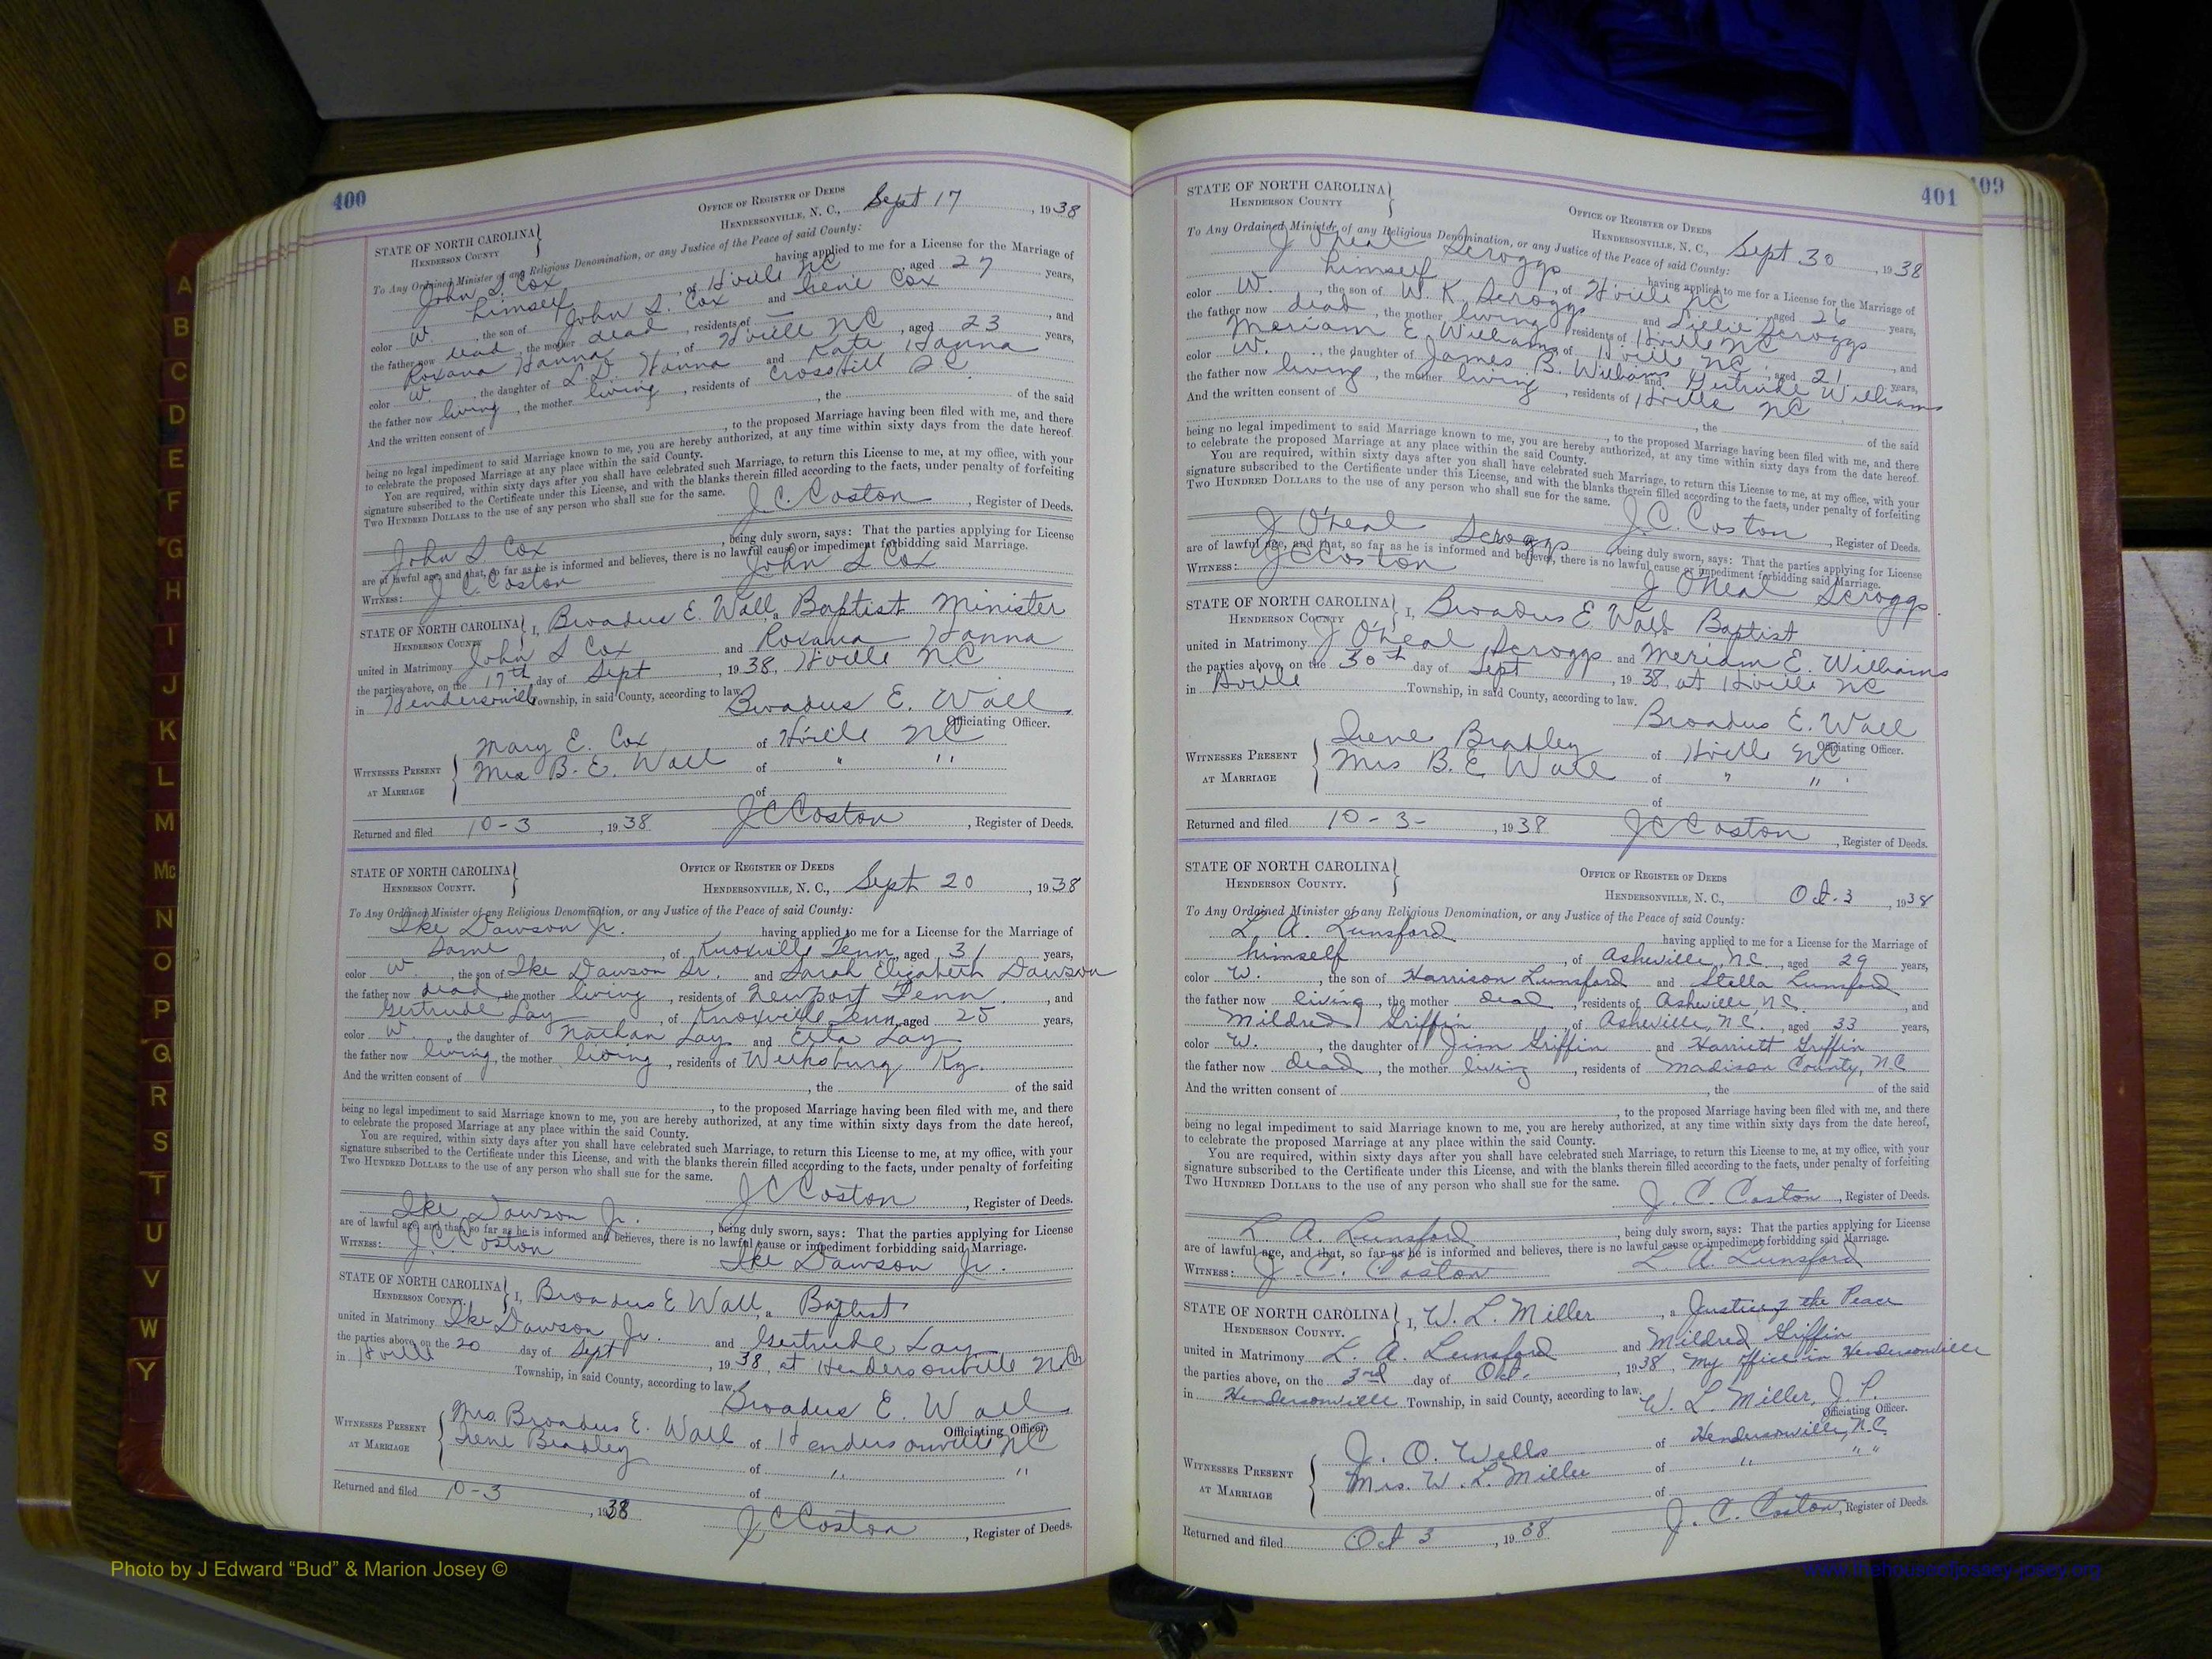 400
OFFICE OF REGISTER OF DEEDS
HENDERSONVILLE, N. C., Sept 17, 1938
STATE OF NORTH CAROLINA
HENDERSON COUNTY
To Any Ordained Minister of any Religious Denomination, or any Justice of the Peace of said County:
John S Cox having applied to me for a License for the Marriage of
himself, of H'ville NC, aged 27 years,
color W., the son of John S. Cox and Irene Cox
the father now dead, the mother dead, residents of —, and
Roxana Hanna, of H'ville NC, aged 23 years,
color W, the daughter of L.D. Hanna and Kate Hanna
the father now living, the mother living, residents of Cross Hill S.C.
And the written consent of , the of the said
, to the proposed Marriage having been filed with me, and there
being no legal impediment to said Marriage known to me, you are hereby authorized, at any time within sixty days from the date hereof,
to celebrate the proposed Marriage at any place within the said County.
You are required, within sixty days after you shall have celebrated such Marriage, to return this License to me, at my office, with your
signature subscribed to the Certificate under this License, and with the blanks therein filled according to the facts, under penalty of forfeiting
TWO HUNDRED DOLLARS to the use of any person who shall sue for the same.
J.C. Coston, Register of Deeds.
John S. Cox, being duly sworn, says: That the parties applying for License
are of lawful age, and that, so far as he is informed and believes, there is no lawful cause or impediment forbidding said Marriage.
WITNESS: J. C. Coston John S Cox
STATE OF NORTH CAROLINA
HENDERSON COUNTY
I, Broadus E. Wall, a Baptist Minister
united in Matrimony John S Cox and Roxana Hanna
the parties above, on the 17th day of Sept, 1938, H'ville NC
in Hendersonville Township, in said County, according to law.
Broadus E. Wall
Officiating Officer.
WITNESSES PRESENT AT MARRIAGE
Mary E. Cox of H'ville NC
Mrs B. E. Wall of " "
of
Returned and filed 10-3, 1938 J C Coston, Register of Deeds.
STATE OF NORTH CAROLINA
HENDERSON COUNTY.
OFFICE OF REGISTER OF DEEDS
HENDERSONVILLE, N. C., Sept 20, 1938
To Any Ordained Minister of any Religious Denomination, or any Justice of the Peace of said County:
Ike Dawson Jr. having applied to me for a License for the Marriage of
Same, of Knoxville Tenn, aged 31 years,
color W, the son of Ike Dawson Sr. and Sarah Elizabeth Dawson
the father now dead, the mother living, residents of Newport Tenn, and
Gertrude Lay, of Knoxville Tenn, aged 25 years,
color W., the daughter of Nathan Lay and Etta Lay
the father now living, the mother living, residents of Weeksburg Ky.
And the written consent of , the of the said
, to the proposed Marriage having been filed with me, and there
being no legal impediment to said Marriage known to me, you are hereby authorized, at any time within sixty days from the date hereof,
to celebrate the proposed Marriage at any place within the said County.
You are required, within sixty days after you shall have celebrated such Marriage, to return this License to me, at my office, with your
signature subscribed to the Certificate under this License, and with the blanks therein filled according to the facts, under penalty of forfeiting
TWO HUNDRED DOLLARS to the use of any person who shall sue for the same.
J C Coston, Register of Deeds.
Ike Dawson Jr., being duly sworn, says: That the parties applying for License
are of lawful age, and that, so far as he is informed and believes, there is no lawful cause or impediment forbidding said Marriage.
WITNESS: J. C. Coston Ike Dawson Jr.
STATE OF NORTH CAROLINA
HENDERSON COUNTY.
I, Broadus E Wall, a Baptist
united in Matrimony Ike Dawson Jr. and Gertrude Lay
the parties above, on the 20 day of Sept, 1938, at Hendersonville NC
in H'ville Township, in said County, according to law.
Broadus E. Wall
Officiating Officer.
WITNESSES PRESENT AT MARRIAGE
Mrs. Broadus E. Wall of Hendersonville NC
Irene Bradley of " "
of
Returned and filed 10-3, 1938 J C Coston, Register of Deeds.
401
409
STATE OF NORTH CAROLINA
HENDERSON COUNTY
OFFICE OF REGISTER OF DEEDS
HENDERSONVILLE, N. C., Sept 30, 1938
To Any Ordained Minister of any Religious Denomination, or any Justice of the Peace of said County:
J O'Neal Scroggs having applied to me for a License for the Marriage of
himself, of H'ville NC, aged 26 years,
color W., the son of W. K. Scroggs and Lillie Scroggs
the father now dead, the mother living, residents of H'ville NC, and
Meriam E. Williams, of H'ville NC, aged 21 years,
color W., the daughter of James B. Williams and Gertrude Williams
the father now living, the mother living, residents of H'ville NC
And the written consent of , the of the said
, to the proposed Marriage having been filed with me, and there
being no legal impediment to said Marriage known to me, you are hereby authorized, at any time within sixty days from the date hereof.
to celebrate the proposed Marriage at any place within the said County.
You are required, within sixty days after you shall have celebrated such Marriage, to return this License to me, at my office, with your
signature subscribed to the Certificate under this License, and with the blanks therein filled according to the facts, under penalty of forfeiting
TWO HUNDRED DOLLARS to the use of any person who shall sue for the same.
J.C. Coston, Register of Deeds.
J O'Neal Scroggs, being duly sworn, says: That the parties applying for License
are of lawful age, and that, so far as he is informed and believes, there is no lawful cause or impediment forbidding said Marriage.
WITNESS: J C Coston J O'Neal Scroggs
STATE OF NORTH CAROLINA
HENDERSON COUNTY
I, Broadus E. Wall Baptist
united in Matrimony J O'Neal Scroggs and Meriam E. Williams
the parties above, on the 30th day of Sept, 1938, at H'ville NC
in H'ville Township, in said County, according to law.
Broadus E. Wall
Officiating Officer.
WITNESSES PRESENT AT MARRIAGE
Irene Bradley of H'ville NC
Mrs B. E Wall of " "
of
Returned and filed 10-3-, 1938 J C Coston, Register of Deeds.
STATE OF NORTH CAROLINA
HENDERSON COUNTY.
OFFICE OF REGISTER OF DEEDS
HENDERSONVILLE, N. C., Oct. 3, 1938
To Any Ordained Minister of any Religious Denomination, or any Justice of the Peace of said County:
L. A. Lunsford having applied to me for a License for the Marriage of
himself, of Asheville, N.C., aged 29 years,
color W., the son of Harrison Lunsford and Stella Lunsford
the father now living, the mother dead, residents of Asheville, N.C., and
Mildred Griffin, of Asheville, N.C., aged 33 years,
color W., the daughter of Jim Griffin and Harriett Griffin
the father now dead, the mother living, residents of Madison County, N C
And the written consent of , the of the said
, to the proposed Marriage having been filed with me, and there
being no legal impediment to said Marriage known to me, you are hereby authorized, at any time within sixty days from the date hereof,
to celebrate the proposed Marriage at any place within the said County.
You are required, within sixty days after you shall have celebrated such Marriage, to return this License to me, at my office, with your
signature subscribed to the Certificate under this License, and with the blanks therein filled according to the facts, under penalty of forfeiting
TWO HUNDRED DOLLARS to the use of any person who shall sue for the same.
J. C. Coston, Register of Deeds.
L. A. Lunsford, being duly sworn, says: That the parties applying for License
are of lawful age, and that, so far as he is informed and believes, there is no lawful cause or impediment forbidding said Marriage.
WITNESS: J. C. Coston L. A. Lunsford
STATE OF NORTH CAROLINA
HENDERSON COUNTY.
I, W. L. Miller, a Justice of the Peace
united in Matrimony L. A. Lunsford and Mildred Griffin
the parties above, on the 3rd day of Oct., 1938, My office in Hendersonville
in Hendersonville Township, in said County, according to law.
W. L. Miller, J. P.
Officiating Officer.
WITNESSES PRESENT AT MARRIAGE
J. O. Wells of Hendersonville, N.C.
Mrs. W. L. Miller of " " "
of
Returned and filed Oct 3, 1938 J. C. Coston, Register of Deeds.
A
B
C
D
E
F
G
H
I
J
K
L
M
Mc
N
O
P
Q
R
S
T
U
V
W
Y
Photo by J Edward “Bud” & Marion Josey ©
www.thehouseofjossey-josey.org